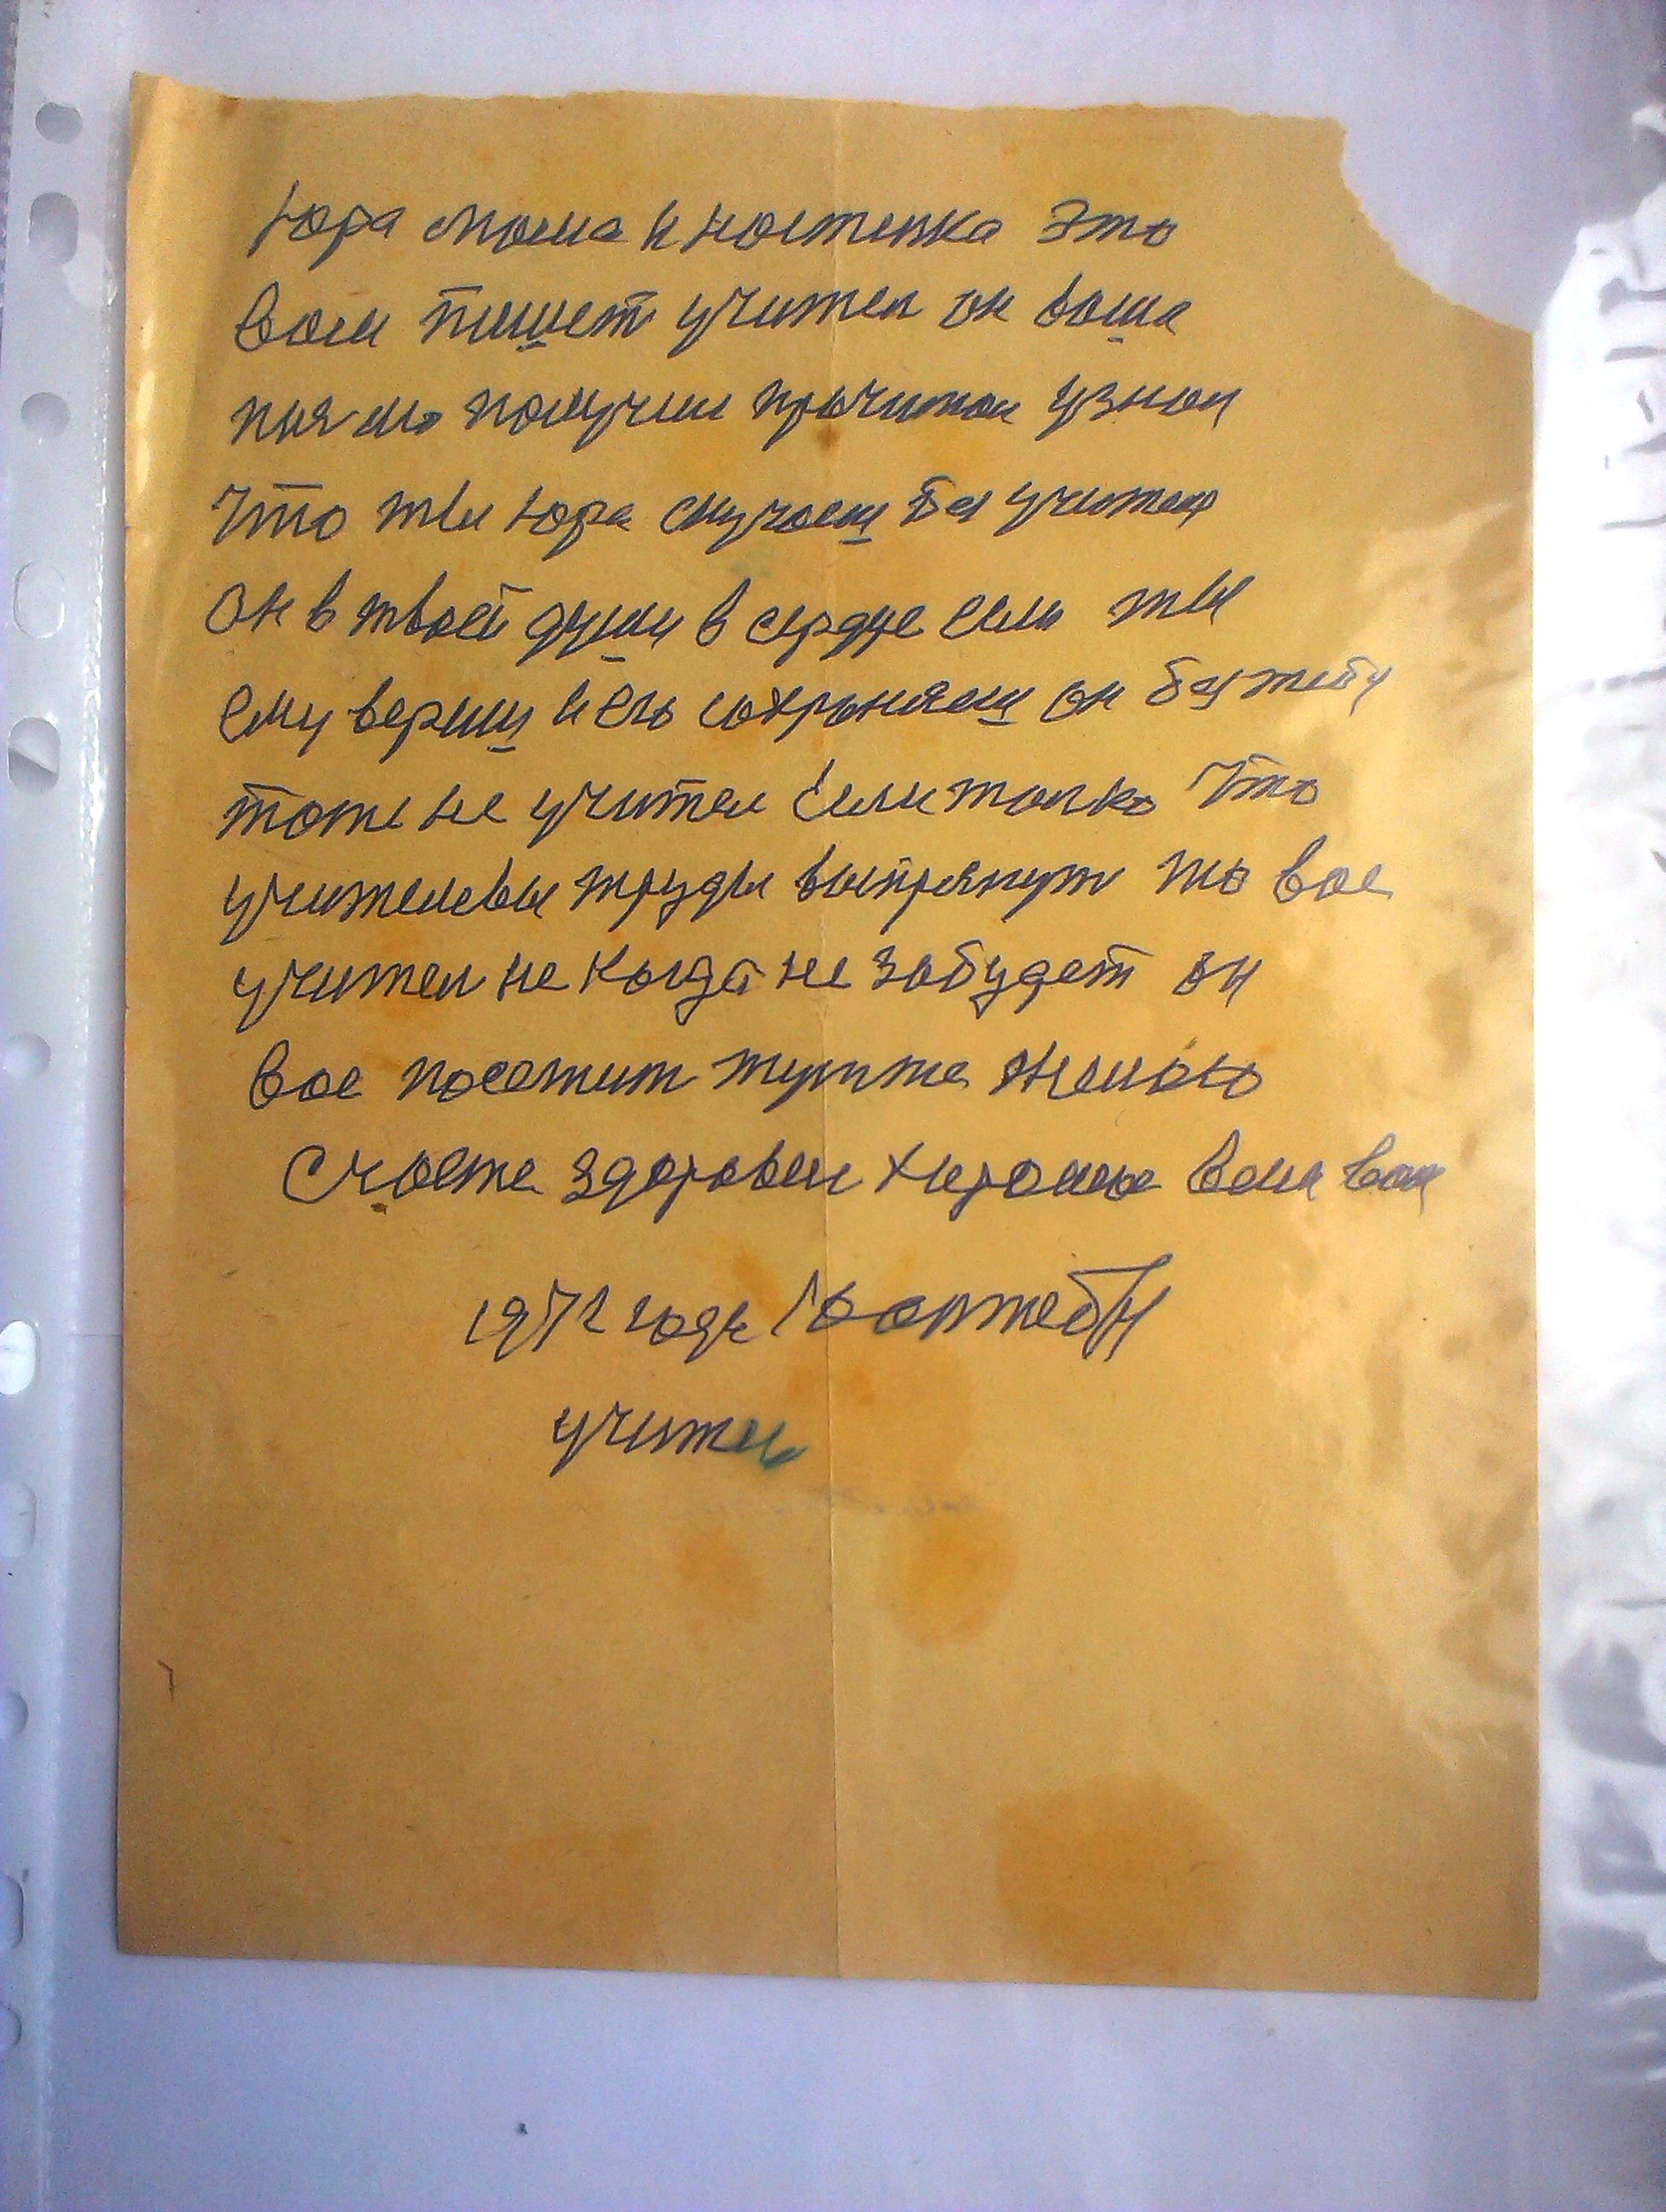 Юра мама и настенка Это
вам пишет учител он ваша
писмо получил прочитал узнал
Что ты Юра скучаеш без учителя
Он в твоей души в сердце если ты
ему вериш и его сохраняеш он без тебя
тоже не учител Если толко Что
учителевы труды выпрянут то вас
учител не когда не забудет он
вас посетит тут же Желаю
Счастя здоровья хорошо вам вам
1972 года
учител